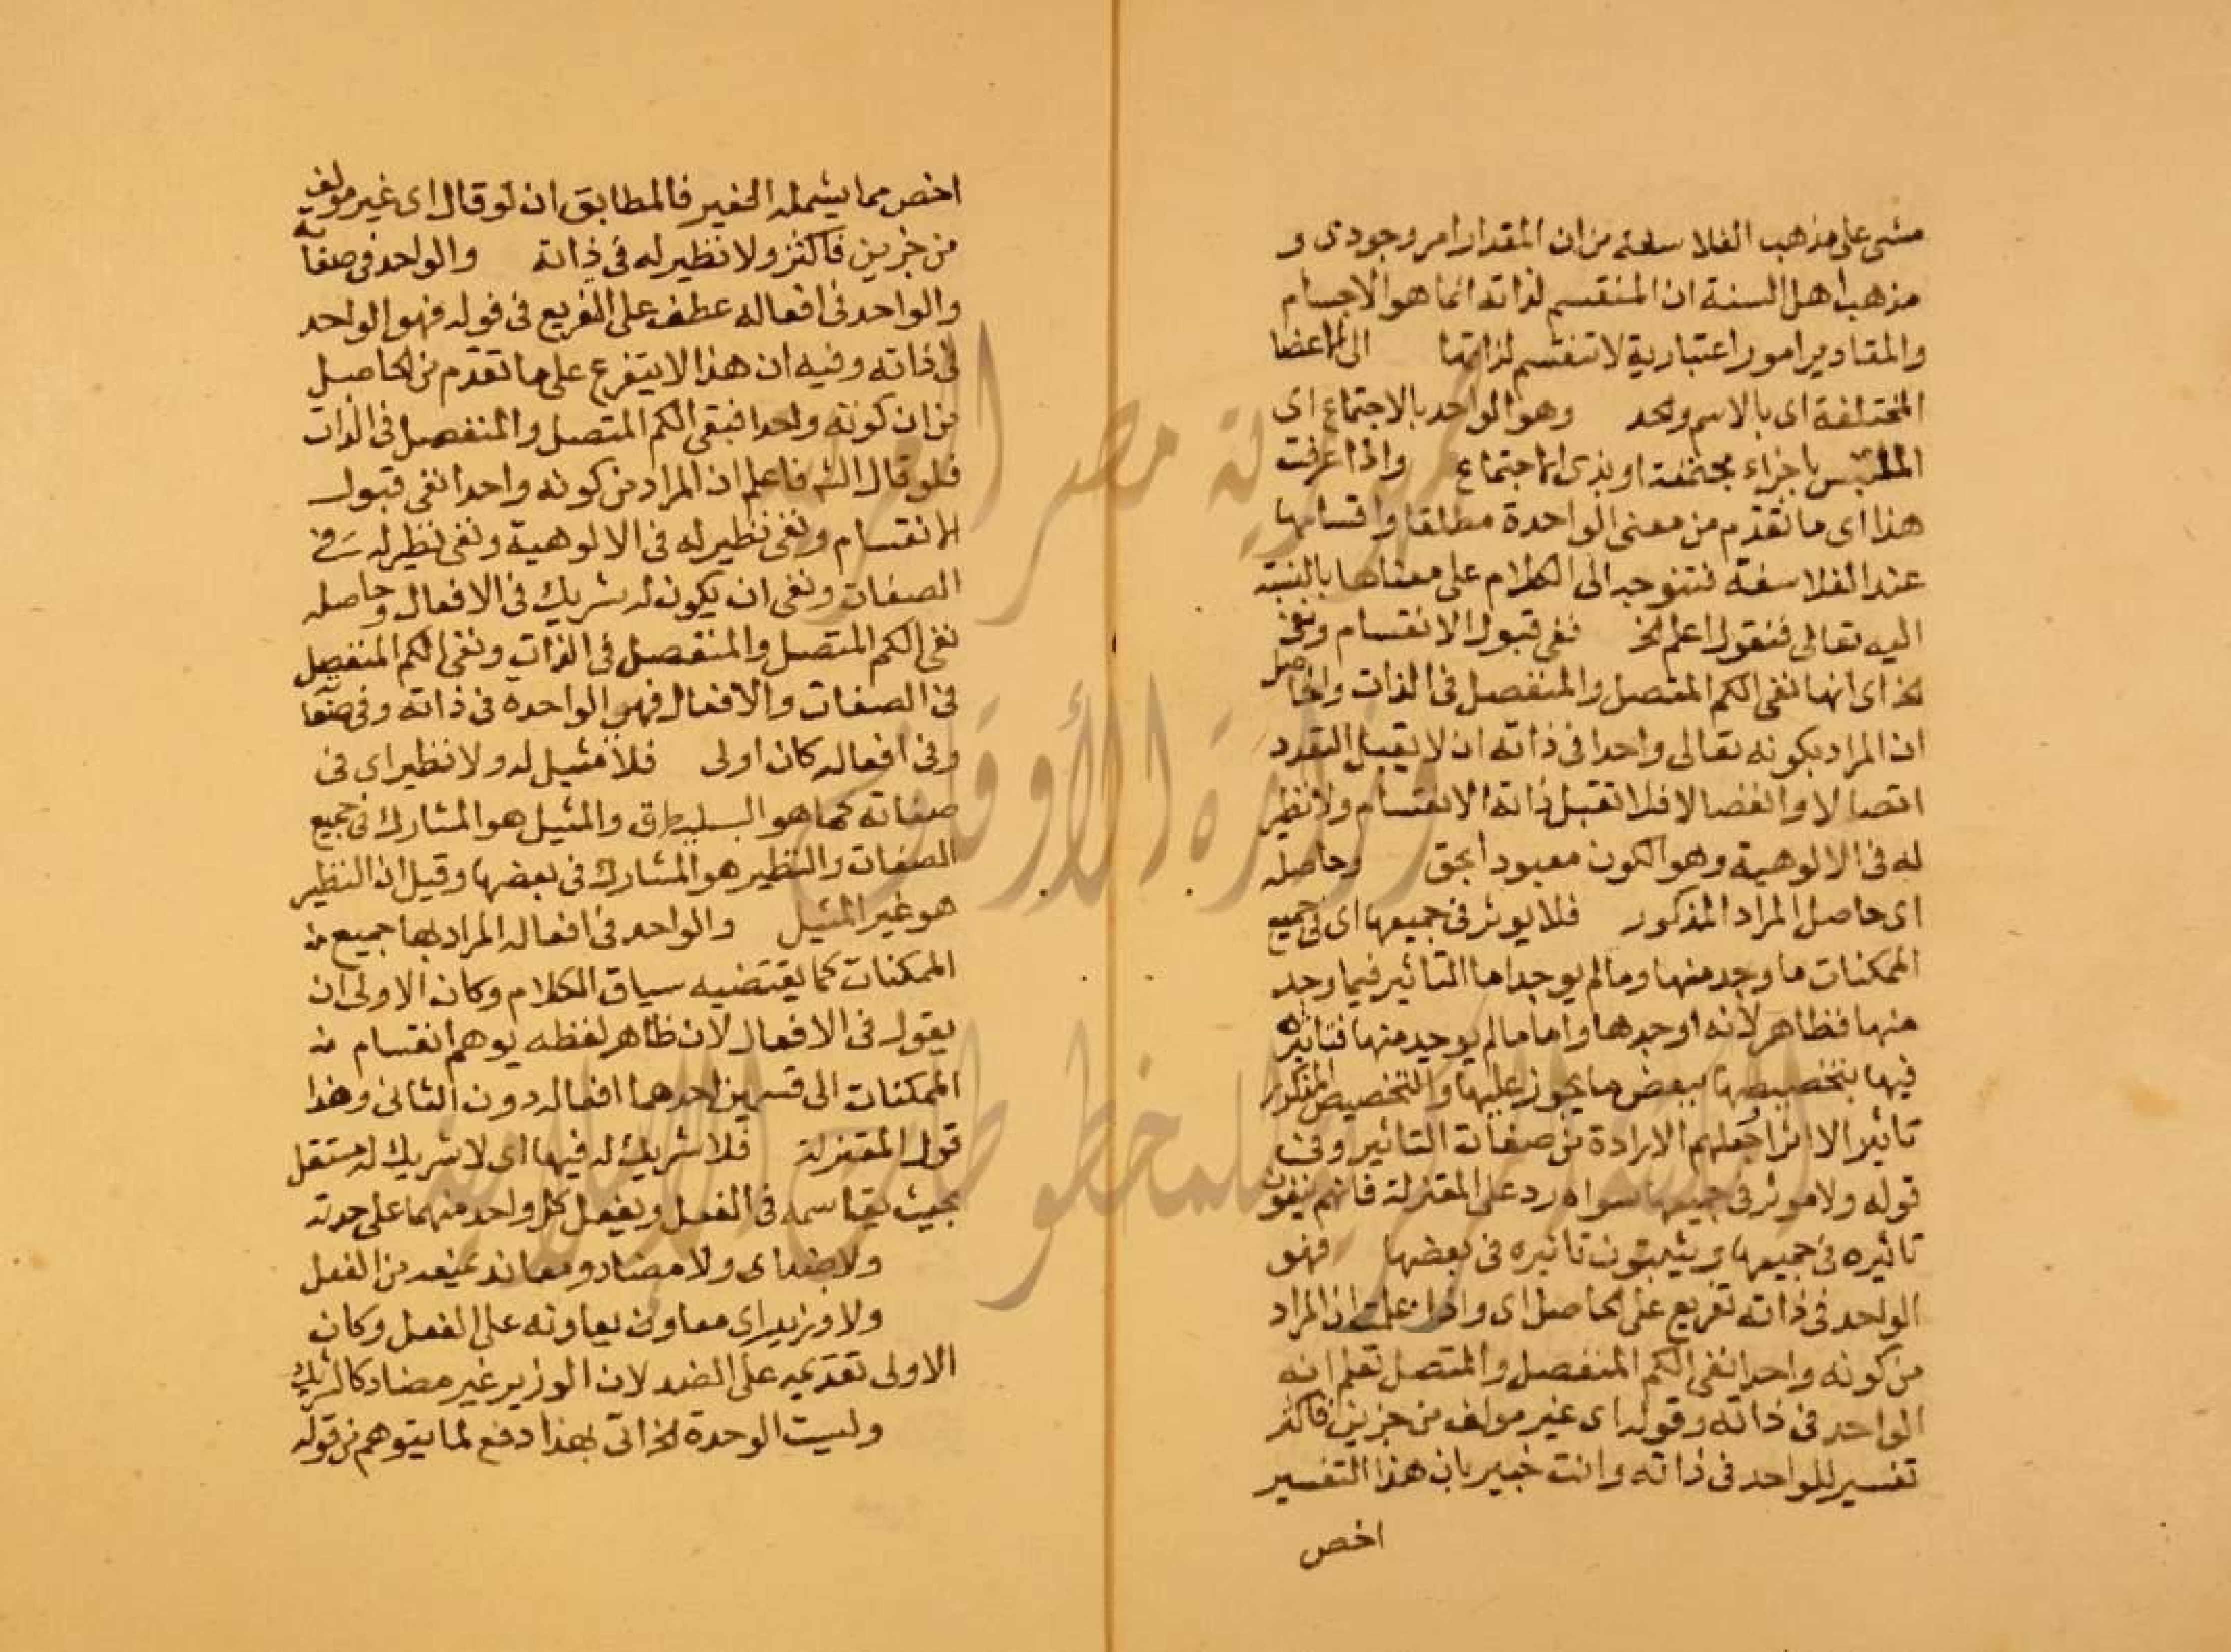 مشى على مذهب الفلاسفة من ان المقدار امر وجودى و
مذهب اهل السنة ان المنقسم لذاته انما هو الاجسام
والمقادير امور اعتبارية لا تنقسم لذاتها الى الاعضا
المختلفة اى بالاسم والحد وهو الواحد بالاجتماع اى
الملتبس باجزاء مجتمعة او بذى الاجتماع واذا عرفت
هذا اى ما تقدم من معنى الواحدة مطلقا واقسامها
عند الفلاسفة فنتوجه الى الكلام على معناها بالنسبة
اليه تعالى فنقول اعلم الخ نفى قبول الانقسام ونفى
الخ اى انها نفى الكم المتصل والمنفصل فى الذات والحاصل
ان المراد بكونه تعالى واحدا فى ذاته ان لا يقبل التعدد
اتصالا وانفصالا فلا تقبل ذاته الانقسام ولا نظير
له فى الالوهية وهو الكون معبودا بحق وحاصله
اى حاصل المراد المذكور فلا يوثر فى جميعها اى فى جميع
الممكنات ما وجد منها وما لم يوجد اما التاثير فيما وجد
منها فظاهر لانه اوجدها واما ما لم يوجد منها فتاثيره
فيها بتخصيصها ببعض ما يجوز عليها والتخصيص المذكور
تاثير الا اثرا جعلهم الارادة من صفات التاثير وفى
قوله ولا موثر فى جميعها سواه رد على المعتزلة فانهم ينفون
تاثيره فى جميعها ويثبتون تاثيره فى بعضها فهو
الواحد فى ذاته تفريع على الحاصل اى واذا علمت ان المراد
من كونه واحدا نفى الكم المنفصل والمتصل تعلم انه
الواحد فى ذاته وقوله اى غير مولف من جزين فاكثر
تفسير للواحد فى ذاته وانت خبير بان هذا التفسير
اخص
اخص مما يشمله الضمير فالمطابق ان لو قال اى غير مولف
من جزين فاكثر ولا نظير له فى ذاته والواحد فى صفاته
والواحد فى افعاله عطف على التفريع فى قوله فهو الواحد
فى ذاته وفيه ان هذا لا يتفرع على ما تقدم من الحاصل
من ان كونه واحدا فبقى الكم المتصل والمنفصل فى الذات
فلو قال الش فاعلم ان المراد من كونه واحدا نفى قبول
الانقسام ونفى نظير له فى الالوهية ونفى نظير له فى
الصفات ونفى ان يكون له شريك فى الافعال وحاصله
نفى الكم المتصل والمنفصل فى الذات ونفى الكم المنفصل
فى الصفات والافعال فهو الواحدة فى ذاته وفى صفا
وفى افعاله كان اولى فلا مثيل له ولا نظير اى فى
صفاته كما هو السياق والمثيل هو المشارك فى جميع
الصفات والنظير هو المشارك فى بعضها وقيل ان النظير
هو غير المثيل والواحد فى افعاله المراد بها جميع
الممكنات كما يقتضيه سياق الكلام وكان الاولى ان
يقول فى الافعال لان ظاهر لفظه يوهم انقسام
الممكنات الى قسمين احدهما افعاله دون الثانى وهذا
قول المعتزلة فلا شريك له فيها اى لا شريك له مستقل
بحيث يقاسمه فى الفعل ويفعل كل واحد منهما على حدته
ولا ضد اى ولا مضاد ومعاند يمنعه من الفعل
ولا وزير اى معاون يعاونه على الفعل وكان
الاولى تقديمه على الضد لان الوزير غير مضاد كالشريك
وليست الوحدة الخ اتى بهذا دفع لما يتوهم من قوله